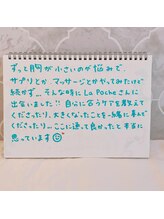 ずっと胸が小さいのが悩みで、
サプリとか、マッサージとかやってみたけど
続かず…そんな時に La Pocheさんに
出会いました!! 自分に合うケアを教えて
くださったり、大きくなったことを一緒に喜んで
くださったり…ここに通って良かったと本当に
思っています